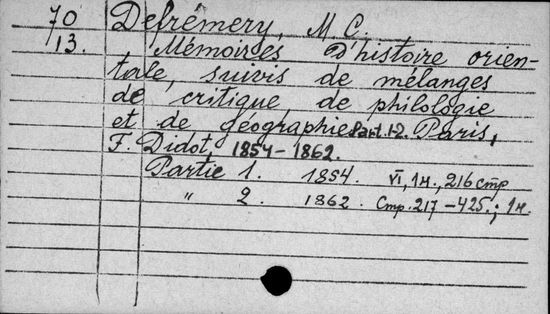 70 Defrémery, M. C.
13. Mémoires d'histoire orien-
tale, suivis de mélanges
de critique, de philologie
et de géographie Part. 1-2. Paris,
F. Didot, 1854-1862.
Partie 1. 1854. VI, 1н., 216 стр
" 2. 1862. Стр. 217-425.; 1н.